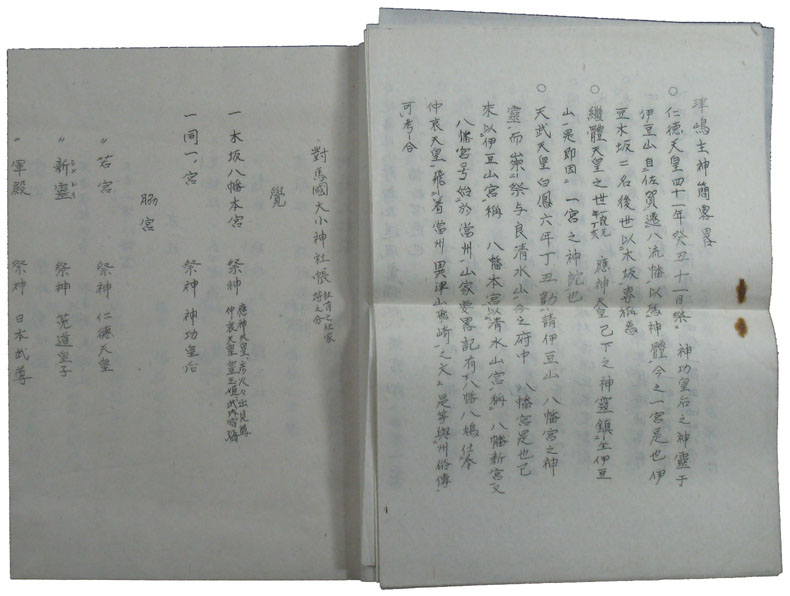 津嶋主神簡畧畧
○仁徳天皇四十一年癸丑十一日祭神功皇后之神靈于
伊豆山自佐賀遷八流幡以為神體今之一宮是也伊
豆木坂二名後世以木坂専称焉
○繼體天皇之世 應神天皇已下之神靈鎮坐伊豆
山是即因一宮之神詑也
○天武天皇白鳳六年丁丑勅請伊豆山八幡宮之神
靈而崇祭与良清水山今之府中八幡宮是也已
来以伊豆山宮称八幡本宮以清水山宮称八幡新宮又
八幡宮号始於當州山家要畧記有八幡八鳩仕奉
仲哀天皇飛着當州 之文是等與州俗傳
可考合
對馬國大小神社帳
覺
一 木坂八幡本宮 祭神 應神天皇 彦火々出見尊
仲哀天皇 豊玉姫 武内宿祢
一 同一ノ宮 祭神 神功皇后
脇宮
〃 若宮 祭神 仁德天皇
〃 新靈 祭神 菟道皇子
〃 軍殿 祭神 日本武尊